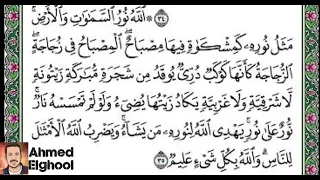 ۞ ٱللَّهُ نُورُ ٱلسَّمَٰوَٰتِ وَٱلْأَرْضِ ۚ ٣٤
مَثَلُ نُورِهِۦ كَمِشْكَوٰةٍ فِيهَا مِصْبَاحٌ ۖ ٱلْمِصْبَاحُ فِى زُجَاجَةٍ ۖ
ٱلزُّجَاجَةُ كَأَنَّهَا كَوْكَبٌ دُرِّىٌّ يُوقَدُ مِن شَجَرَةٍ مُّبَٰرَكَةٍ زَيْتُونَةٍ
لَّا شَرْقِيَّةٍ وَلَا غَرْبِيَّةٍ يَكَادُ زَيْتُهَا يُضِىٓءُ وَلَوْ لَمْ تَمْسَسْهُ نَارٌ ۚ
نُّورٌ عَلَىٰ نُورٍ ۗ يَهْدِى ٱللَّهُ لِنُورِهِۦ مَن يَشَآءُ ۚ وَيَضْرِبُ ٱللَّهُ ٱلْأَمْثَٰلَ
لِلنَّاسِ ۗ وَٱللَّهُ بِكُلِّ شَىْءٍ عَلِيمٌ ٣٥
Ahmed
Elghool